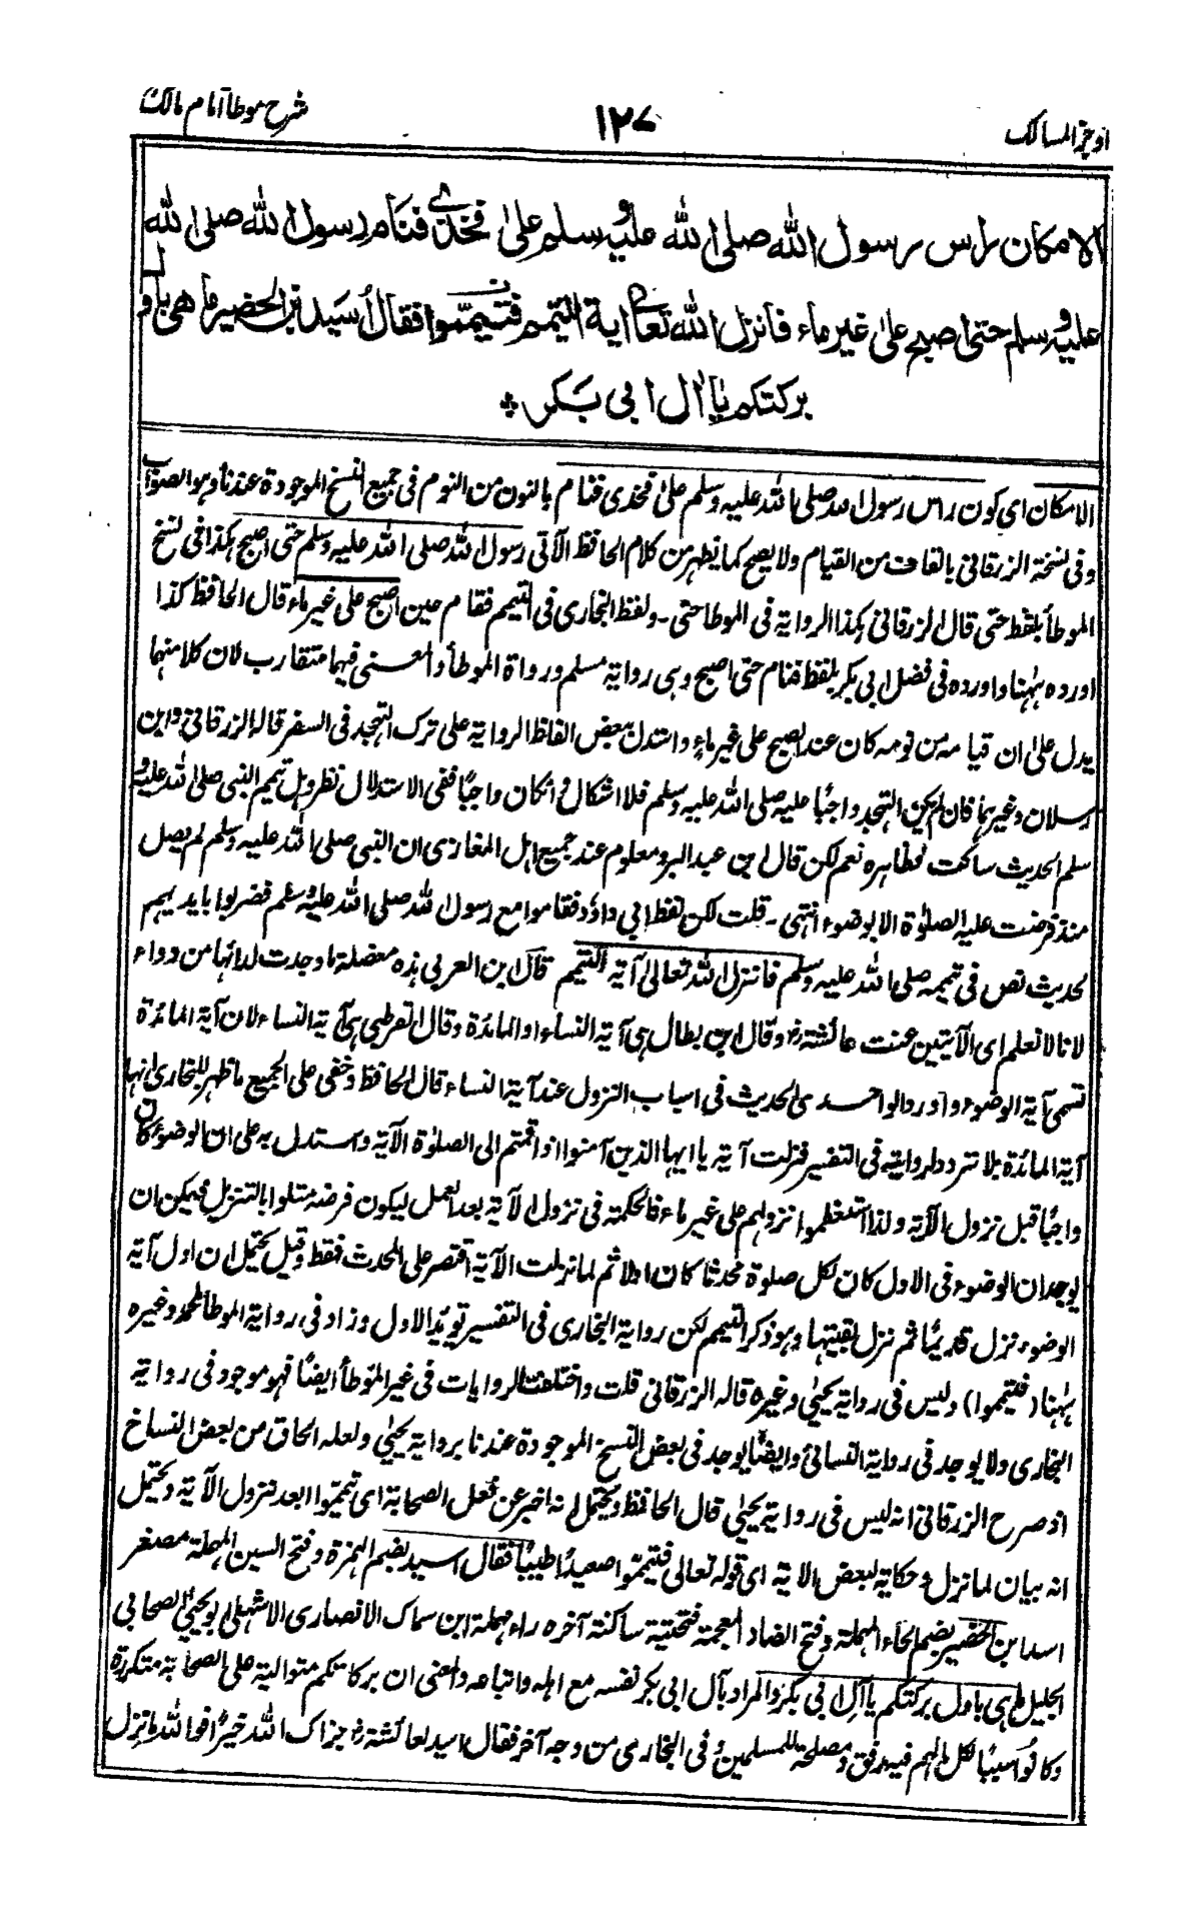 اوجز المسالك
١٢٧
شرح موطا امام مالك
الا مكان راس رسول الله صلى الله عليه وسلم على فخذى فنام رسول الله صلى الله
عليه وسلم حتى اصبح على غير ماء فانزل الله تعالى اية التيمم فتيمموا فقال أسيد بن الحضير ما هى باول
بركتكم يا ال ابى بكر ٭
الامكان اى كون راس رسول الله صلى الله عليه وسلم على فخذى فنام بالنون من النوم فى جميع النسخ الموجودة عندنا وهو الصواب
وفى نسخة الزرقانى بالقاف من القيام ولا يصح كما يظهر من كلام الحافظ الآتى رسول الله صلى الله عليه وسلم حتى اصبح هكذا فى نسخ
الموطأ بلفظ حتى قال الزرقانى هكذا الرواية فى الموطا حتى ۔ ولفظ البخارى فى التيمم فقام حين اصبح على غير ماء قال الحافظ كذا
اورده ههنا واورده فى فضل ابى بكر بلفظ فنام حتى اصبح وهى رواية مسلم ورواة الموطأ والمعنى فيهما متقارب لان كلا منهما
يدل على ان قيامه من نومه كان عند الصبح على غير ماء واستدل ببعض الفاظ الرواية على ترك التهجد فى السفر قاله الزرقانى وابن
رسلان وغيرهما فان لم يكن التهجد واجبًا عليه صلى الله عليه وسلم فلا اشكال وان كان واجبًا ففى الاستدلال نظر وهل تيمم النبى صلى الله عليه و
سلم الحديث ساكت وظاهره نعم لكن قال ابن عبد البر ومعلوم عند جميع اهل المغازى ان النبى صلى الله عليه وسلم لم يصل
منذ فرضت عليه الصلوة الا بوضوء انتهى ۔ قلت لكن لفظ ابى داؤد فقاموا مع رسول الله صلى الله عليه وسلم فضربوا بايديهم
لحديث نص فى تيممه صلى الله عليه وسلم فانزل الله تعالى آية التيمم قال ابن العربى هذه معضلة ما وجدت لدائها من دواء
لانا لا نعلم اى الآيتين عنت عائشة رض وقال ابن بطال هى آية النساء او المائدة وقال القرطبى هى آية النساء لان آية المائدة
تسمى آية الوضوء واورد الواحدى الحديث فى اسباب النزول عند آية النساء قال الحافظ وخفى على الجميع ما ظهر للبخارى انها
آية المائدة بلا تردد لروايته فى التفسير فنزلت آية يا ايها الذين آمنوا اذا قمتم الى الصلوة الآية واستدل به على ان الوضوء كان
واجبًا قبل نزول الآية ولذا استعظموا نزولهم على غير ماء فالحكمة فى نزول الآية بعد العمل ليكون فرضه متلوا بالتنزيل فيمكن ان
يوجه ان الوضوء فى الاول كان لكل صلوة محدثا كان اولا ثم لما نزلت الآية اقتصر على المحدث فقط وقيل يحتمل ان اول آية
الوضوء نزل قديمًا ثم نزل بقيتها وهو ذكر التيمم لكن رواية البخارى فى التفسير تويد الاول وزاد فى رواية الموطا لمحمد وغيره
ههنا (فتيمموا) وليس فى رواية يحيى وغيره قاله الزرقانى قلت واختلفت الروايات فى غير الموطأ ايضًا فهو موجود فى رواية
البخارى ولا يوجد فى رواية النسائى وايضًا يوجد فى بعض النسخ الموجودة عندنا برواية يحيى ولعله الحاق من بعض النساخ
اذ صرح الزرقانى انه ليس فى رواية يحيى قال الحافظ ويحتمل انه اخبر عن فعل الصحابة اى تيمموا بعد نزول الآية ويحتمل
انه بيان لما نزل وحكاية لبعض الاية اى قوله تعالى فتيمموا صعيدًا طيبًا فقال اسيد بضم الهمزة وفتح السين المهملة مصغر
اسد ابن الحضير بضم الحاء المهملة وفتح الضاد المعجمة فتحتية ساكنة آخره راء مهملة ابن سماك الانصارى الاشهلى ابو يحيى الصحابى
الجليل ما هى باول بركتكم يا آل ابى بكر والمراد بآل ابى بكر نفسه مع اهله واتباعه والمعنى ان بركاتكم متوالية على الصحابة متكررة
وكانوا سببًا لكل ما لهم فيه رفق ومصلحة للمسلمين وفى البخارى من وجه آخر فقال اسيد لعائشة رض جزاك الله خيرًا فوالله ما نزل